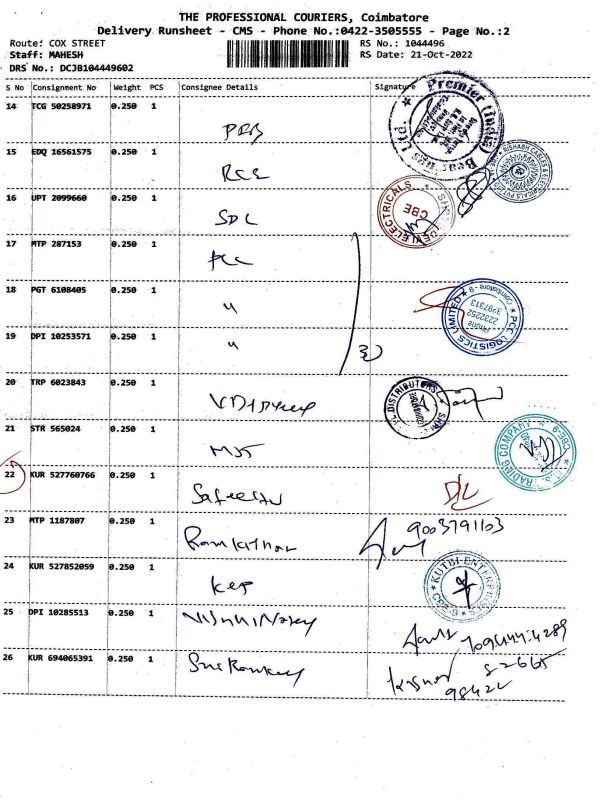 THE PROFESSIONAL COURIERS, Coimbatore
Delivery Runsheet - CMS - Phone No.:0422-3505555 - Page No.:2
Route: COX STREET
RS No.: 1044496
Staff: MAHESH
RS Date: 21-Oct-2022
DRS No.: DCJB104449602
S No Consignment No Weight PCS Consignee Details Signature
14 TCG 50258971 0.250 1
Premier (India) Bearings Ltd.
PRB
15 EDQ 16561575 0.250 1
RISHABH CABLES & ELECTRICALS
RCE
16 UPT 2099660 0.250 1
DEVI ELECTRICALS
CBE
SDL
17 MTP 287153 0.250 1
PCC
18 PGT 6108405 0.250 1
"
PCC LOGISTICS LIMITED
Coimbatore - 9
Phone
2232252
3297313
19 DPI 10253571 0.250 1
"
3
20 TRP 6023843 0.250 1
DISTRIBUTORS
21 STR 565024 0.250 1
MJS
TRADING COMPANY
CBE-9
22 KUR 527760766 0.250 1
D/L
23 MTP 1187807 0.250 1
Ramkumar
9003791103
24 KUR 527852059 0.250 1
KEP
KUTBI ENTERPRISES
25 DPI 10285513 0.250 1
26 KUR 694065391 0.250 1
98422